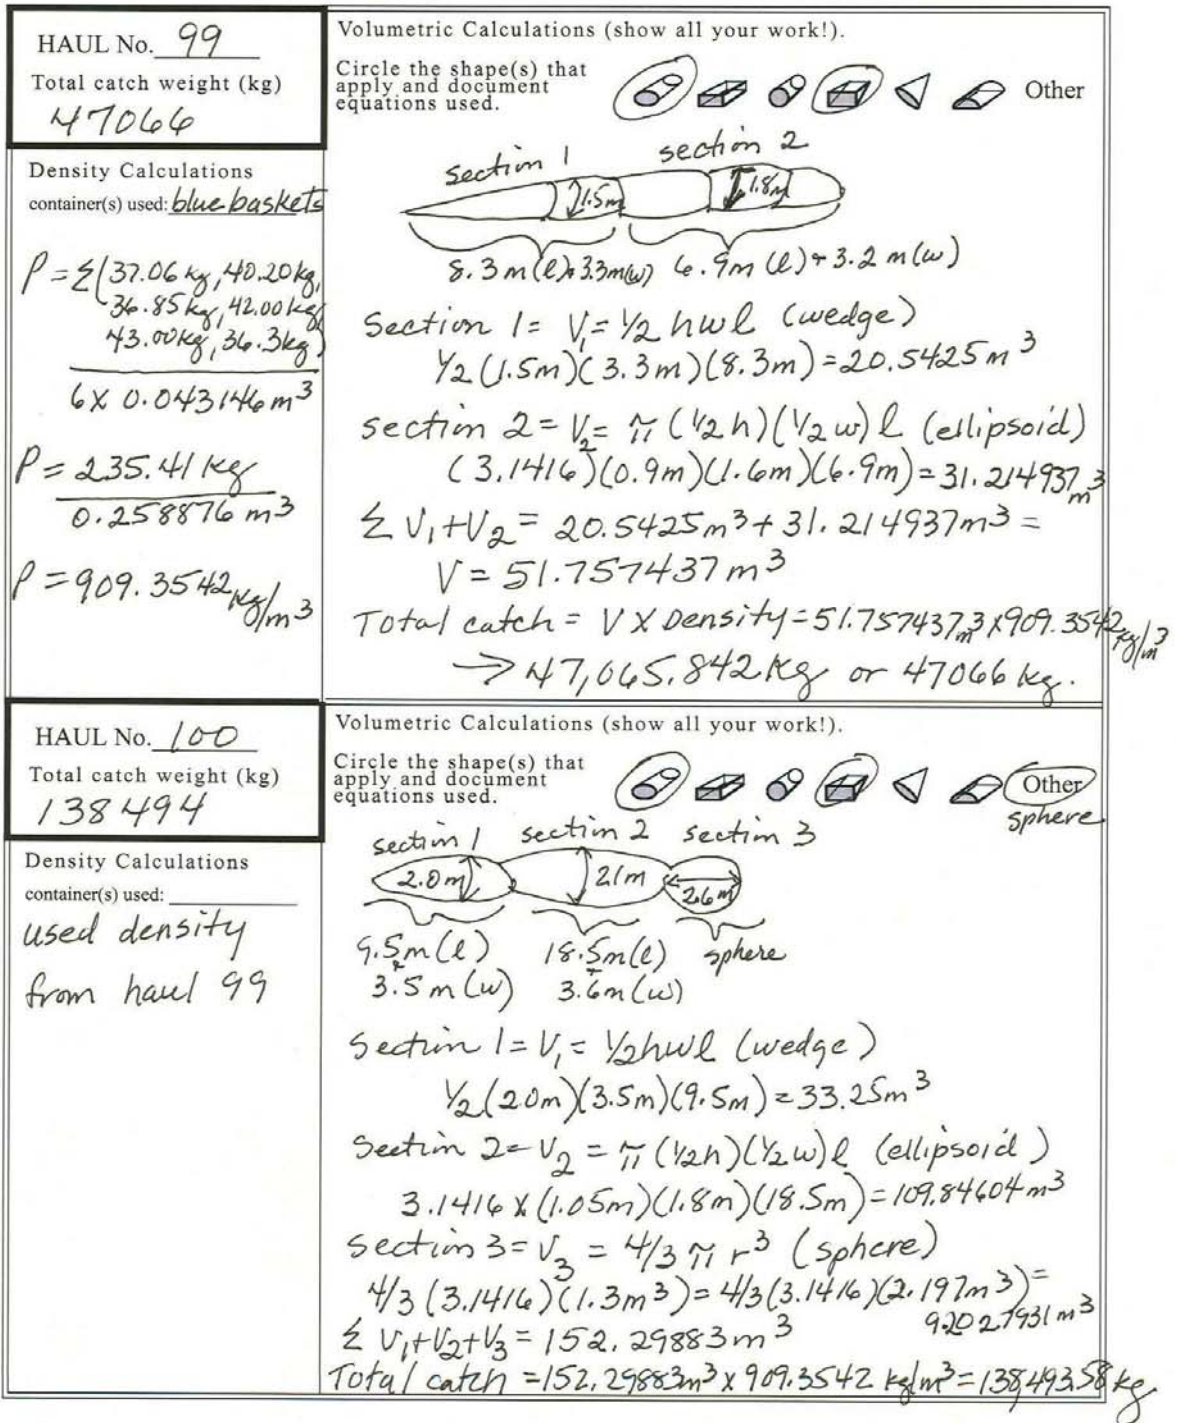 HAUL No. 99
Total catch weight (kg)
47066
Density Calculations
container(s) used: blue baskets
ρ = Σ(37.06 kg, 40.20 kg,
36.85 kg, 42.00 kg,
43.00 kg, 36.3 kg)
6 X 0.043146 m³
ρ = 235.41 kg
0.258876 m³
ρ = 909.3542 kg/m³
Volumetric Calculations (show all your work!).
Circle the shape(s) that
apply and document
equations used.
Other
section 1 section 2
1.5m 1.8m
8.3m(l) + 3.3m(w) 6.9m(l) + 3.2m(w)
Section 1 = V₁ = ½ hwl (wedge)
½ (1.5m)(3.3m)(8.3m) = 20.5425 m³
section 2 = V₂ = π (½ h)(½ w) l (ellipsoid)
(3.1416)(0.9m)(1.6m)(6.9m) = 31.214937 m³
Σ V₁+V₂ = 20.5425m³ + 31.214937m³ =
V = 51.757437 m³
Total catch = V X Density = 51.757437m³ x 909.3542 kg/m³
→ 47,065.842 kg or 47066 kg.
HAUL No. 100
Total catch weight (kg)
138494
Density Calculations
container(s) used:
used density
from haul 99
Volumetric Calculations (show all your work!).
Circle the shape(s) that
apply and document
equations used.
Other
sphere
section 1 section 2 section 3
2.0m 2.1m 2.6m
9.5m(l) 18.5m(l) sphere
+ +
3.5m(w) 3.6m(w)
Section 1 = V₁ = ½hwl (wedge)
½(2.0m)(3.5m)(9.5m) = 33.25m³
Section 2 = V₂ = π (½h)(½w)l (ellipsoid)
3.1416 x (1.05m)(1.8m)(18.5m) = 109.84604 m³
Section 3 = V₃ = 4/3 π r³ (sphere)
4/3 (3.1416)(1.3m³) = 4/3 (3.1416)(2.197m³) =
9.2027931 m³
Σ V₁+V₂+V₃ = 152.29883m³
Total catch = 152.29883m³ x 909.3542 kg/m³ = 138,493.58 kg